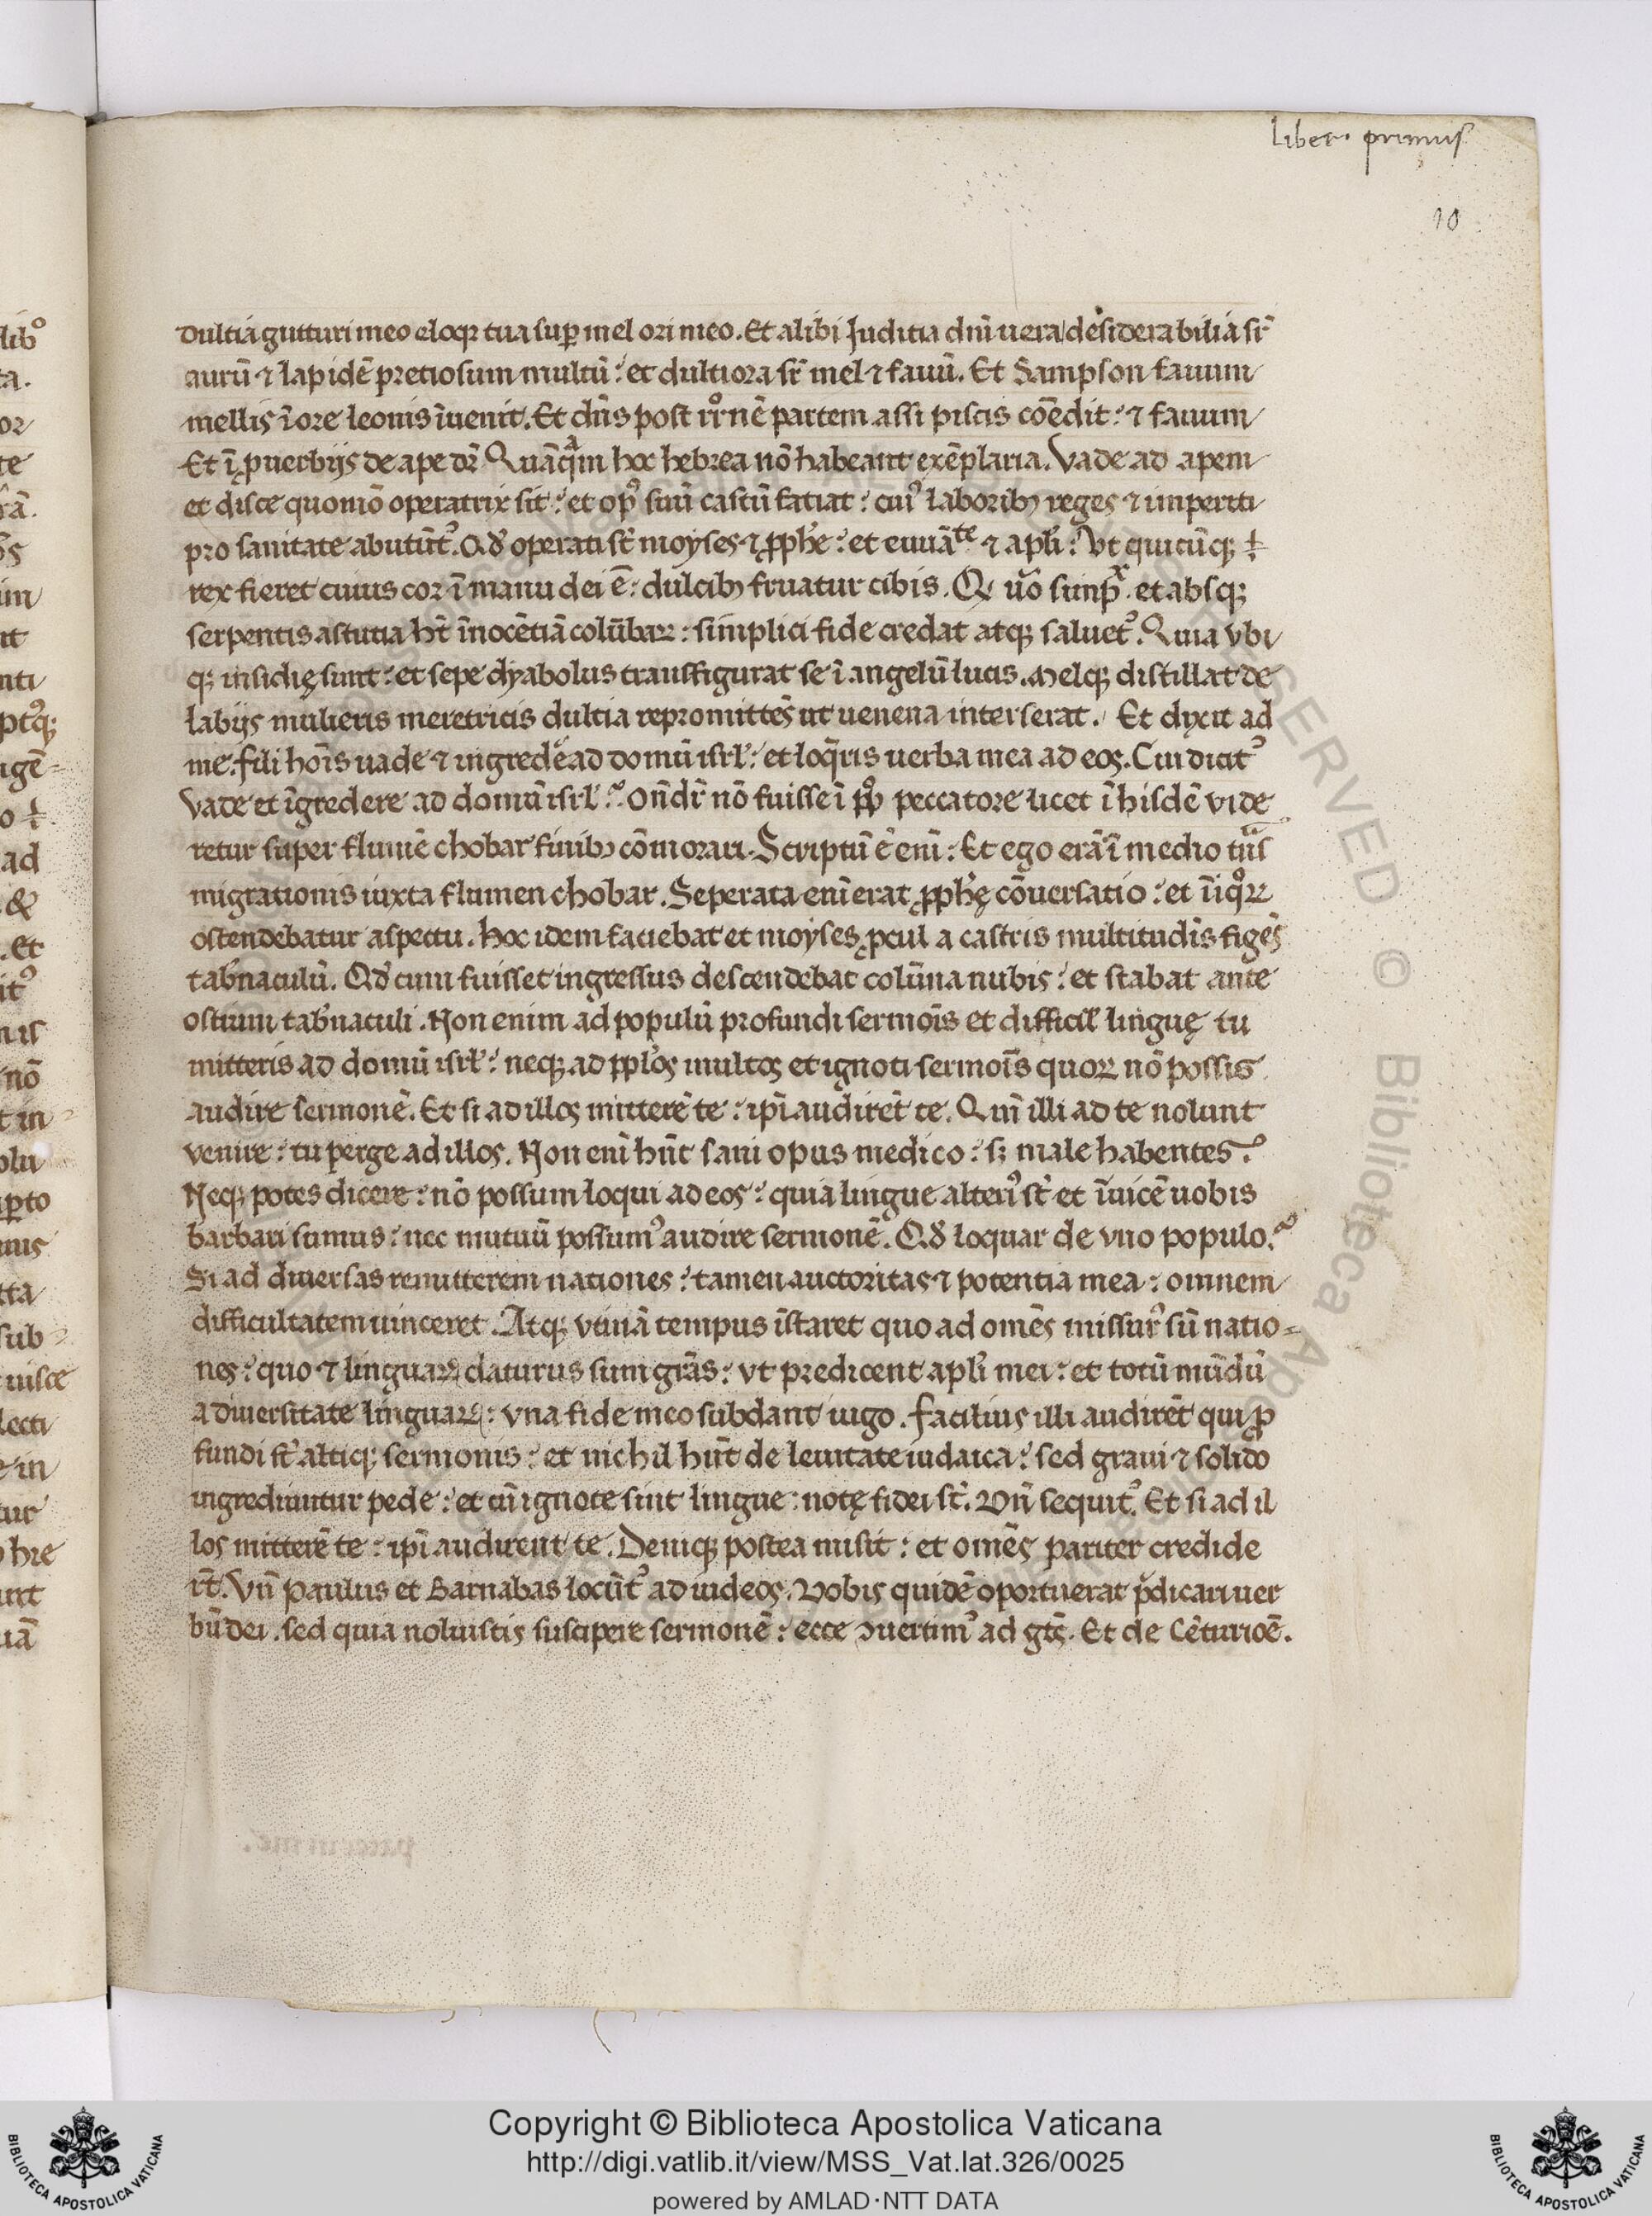 liber primus
10
dultia gutturi meo eloqꝛ tua suꝑ mel ori meo. Et alibi Juditia dn̄i uera desiderabilia sr̄
aurū ⁊ lapidē pretiosum multū: et dultiora sr̄ mel ⁊ fauū. Et Sampson fauum
mellis ī ore leonis īuenit. Et dn̄s post partem assi piscis cōedit: ⁊ fauum
Et ī ꝓuerbijs de ape dr̄ Quāqm hoc hebrea nō habeant exēplaria. Vade ad apem
et disce quomō operatrix sit: et opꝰ suū castū fatiat: cuiꝰ laboribꝫ reges ⁊ imperiti
pro sanitate abutūtꝰ. Qd̓ operati st̄ moyses ⁊ ꝓphe: et euuāte ⁊ apl̓i: Vt quicūqꝫ
rex fieret cuius cor ī manu dei ē: dulcibꝫ fruatur cibis. Qͥ uo simpꝉx. et absqꝫ
serpentis astutia hꝫ īnocētiā colūbaꝝ: simplici fide credat atqꝫ saluetꝰ. Quia vbi
qꝫ insidię sunt: et sepe dyabolus transfigurat se ī angelū lucis. Melqꝫ distillat de
labijs mulieris meretricis dultia repromittēs ut uenena interserat. Et dyxit ad
me. fili hoīs uade ⁊ ingrede ad domū isrl̓: et loq̄ris uerba mea ad eos. Cui dicitꝰ
Vade et īgredere ad domū isrl̓: On̄dr̄ nō fuisse ī pp̄lo peccatore licet ī hisdē vide
retur super flumē chobar finibꝫ cōmorari. Scriptū ē enī: Et ego erā ī medio tn̄s
migrationis iuxta flumen chobar. Seperata enī erat ꝓphę cōuersatio: et ūiqͦꝝ
ostendebatur aspectu. hoc idem faciebat et moyses ꝓcul a castris multitudīs figēs
tab̓naculū. Qd̓ cum fuisset ingressus descendebat colūna nubis: et stabat ante
ostium tab̓naculi. Non enim ad populū profundi sermōis et difficil̓ linguę tu
mitteris ad domū isrl̓: neqꝫ ad ppl̓os multos et ignoti sermoīs quoꝝ nō possis
audire sermonē. Et si ad illos mitterē te: ip̄i audirēt te. Qm̄ illi ad te nolunt
venire: tu perge ad illos. Non enī hn̄t sani opus medico: sꝫ male habentes.
Neqꝫ potes dicere: nō possum loqui ad eos: quia lingue alteriꝰ st̄ et īuicē uobis
barbari sumus: nec mutuū possumꝰ audire sermonē. Qd̓ loquar de vno populo.
Si ad diuersas remitterem nationes: tamen auctoritas ⁊ potentia mea: omnem
difficultatem uinceret. Atqꝫ vtinā tempus īstaret quo ad omēs missurꝰ sū natio=
nes: quo ⁊ linguaꝝ daturus sum gr̄as: vt predicent apl̓i mei: et totū mūdū
a diuersitate linguaꝝ: vna fide meo subdant iugo. facilius illi audirēt qui ꝓ
fundi st̄ altiqꝫ sermonis: et nichil hn̄t de leuitate iudaica: sed graui ⁊ solido
ingrediuntur pede: et cū ignote sint lingue: notę fidei st̄. Vn̄ sequitꝰ. Et si ad il
los mitterē te: ip̄i audirent te. Deniqꝫ postea misit: et omēs pariter credide
rt̄. Vn̄ Paulus et Barnabas locūtꝰ ad iudeos. Vobis quidē oportuerat p̄dicari uer
bū dei. sed quia noluistis suscipere sermonē: ecce ꝯuertimꝰ ad gēts. Et de Cēturiōe.
Copyright © Biblioteca Apostolica Vaticana
http://digi.vatlib.it/view/MSS_Vat.lat.326/0025
powered by AMLAD·NTT DATA
BIBLIOTECA APOSTOLICA VATICANA
BIBLIOTECA APOSTOLICA VATICANA